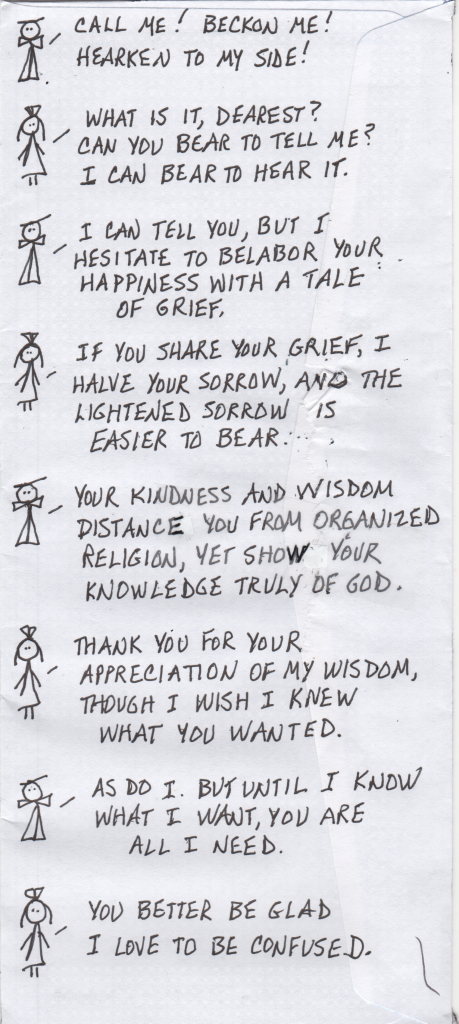 CALL ME! BECKON ME!
HEARKEN TO MY SIDE!
WHAT IS IT, DEAREST?
CAN YOU BEAR TO TELL ME?
I CAN BEAR TO HEAR IT.
I CAN TELL YOU, BUT I
HESITATE TO BELABOR YOUR
HAPPINESS WITH A TALE
OF GRIEF.
IF YOU SHARE YOUR GRIEF, I
HALVE YOUR SORROW, AND THE
LIGHTENED SORROW IS
EASIER TO BEAR.
YOUR KINDNESS AND WISDOM
DISTANCE YOU FROM ORGANIZED
RELIGION, YET SHOW YOUR
KNOWLEDGE TRULY OF GOD.
THANK YOU FOR YOUR
APPRECIATION OF MY WISDOM,
THOUGH I WISH I KNEW
WHAT YOU WANTED.
AS DO I. BUT UNTIL I KNOW
WHAT I WANT, YOU ARE
ALL I NEED.
YOU BETTER BE GLAD
I LOVE TO BE CONFUSED.